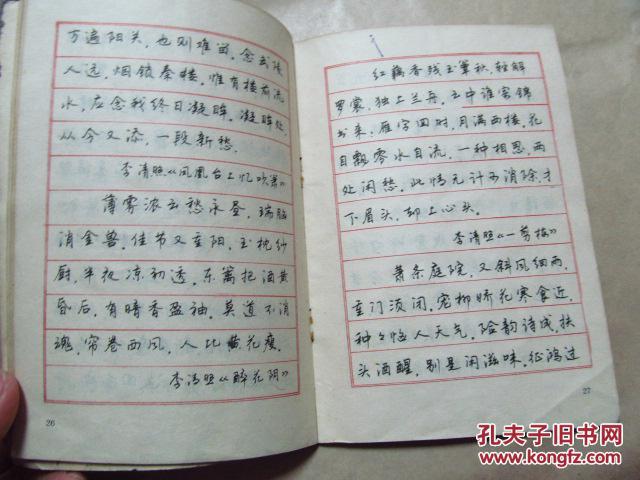 万遍阳关，也则难留，念武陵
人远，烟锁秦楼，惟有楼前流
水，应念我终日凝眸，凝眸处，
从今又添，一段新愁。
李清照《凤凰台上忆吹箫》
薄雾浓云愁永昼，瑞脑
消金兽，佳节又重阳，玉枕纱
厨，半夜凉初透，东篱把酒黄
昏后，有暗香盈袖，莫道不消
魂，帘卷西风，人比黄花瘦。
李清照《醉花阴》
26
红藕香残玉簟秋，轻解
罗裳，独上兰舟，云中谁寄锦
书来，雁字回时，月满西楼，花
自飘零水自流，一种相思，两
处闲愁，此情无计可消除，才
下眉头，却上心头。
李清照《一剪梅》
萧条庭院，又斜风细雨，
重门须闭，宠柳娇花寒食近，
种々恼人天气，险韵诗成，扶
头酒醒，别是闲滋味，征鸿过
27
孔夫子旧书网
www.kongfz.com